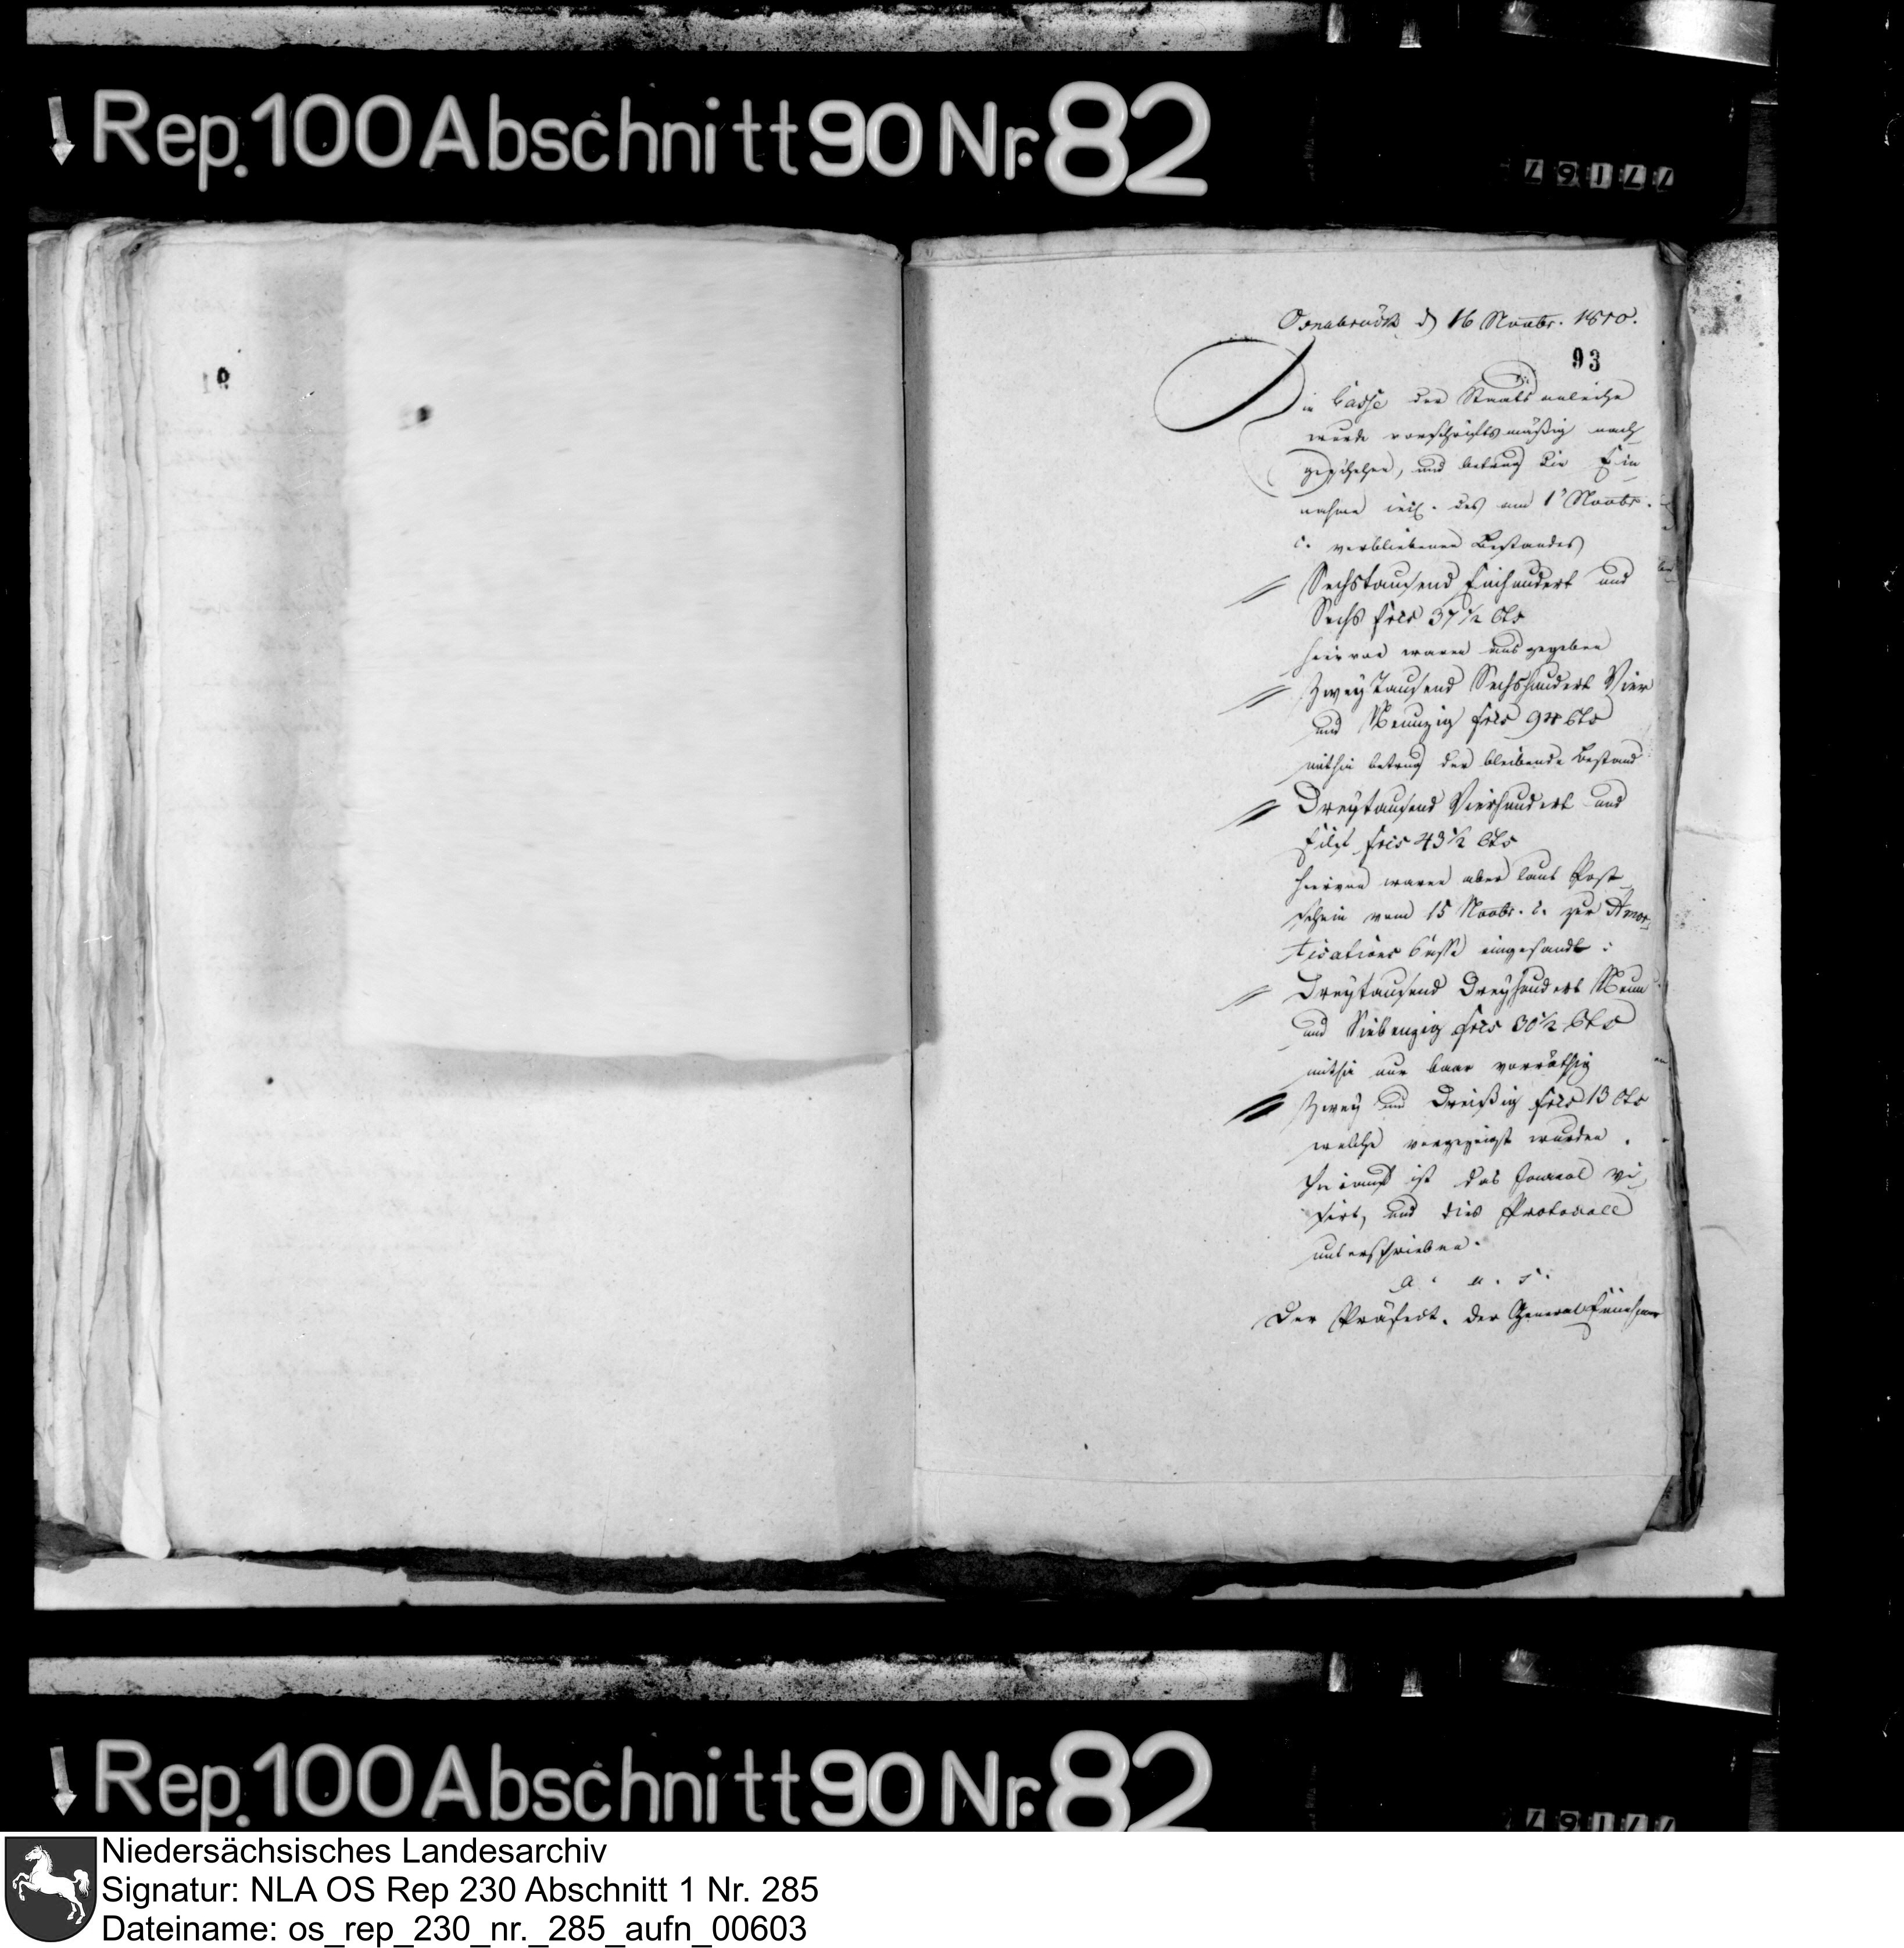 Rep. 100 Abschnitt 90 Nr. 82
Osnabrück d 16 Novbr. 1810.
93
Die Casse der Staats anleihe
wurde vorschriftsmäßig nach
gesehen, und betrug die Ein
nahme incl. des am 1" Novbr.
c. verbliebenen Bestandes
Sechstausend Einhundert und
Sechs frcs 37½ Cts
hiervon waren ausgegeben
Zwey Tausend Sechshundert Vier
und Neunzig frcs 94 Cts
mithin betrug der bleibende Bestand
Dreytausend Vierhundert und
Eilf frcs 43½ Cts
hiervon waren aber laut Post
schein vom 15 Novbr. c. zur Amor
tisations Casse eingesandt:
Dreytausend Dreyhundert Neun
und Siebenzig frcs 30½ Cts
mithin nur baar vorräthig
Zwey und Dreißig frcs 13 Cts
welche vorgezeigt wurden.
Hierauf ist das Journal vi
sirt, und dies Protocoll
unterschrieben.
a. u. s.
Der Präfect. Der General Einehmer
Rep. 100 Abschnitt 90 Nr. 82
Niedersächsisches Landesarchiv
Signatur: NLA OS Rep 230 Abschnitt 1 Nr. 285
Dateiname: os_rep_230_nr._285_aufn_00603